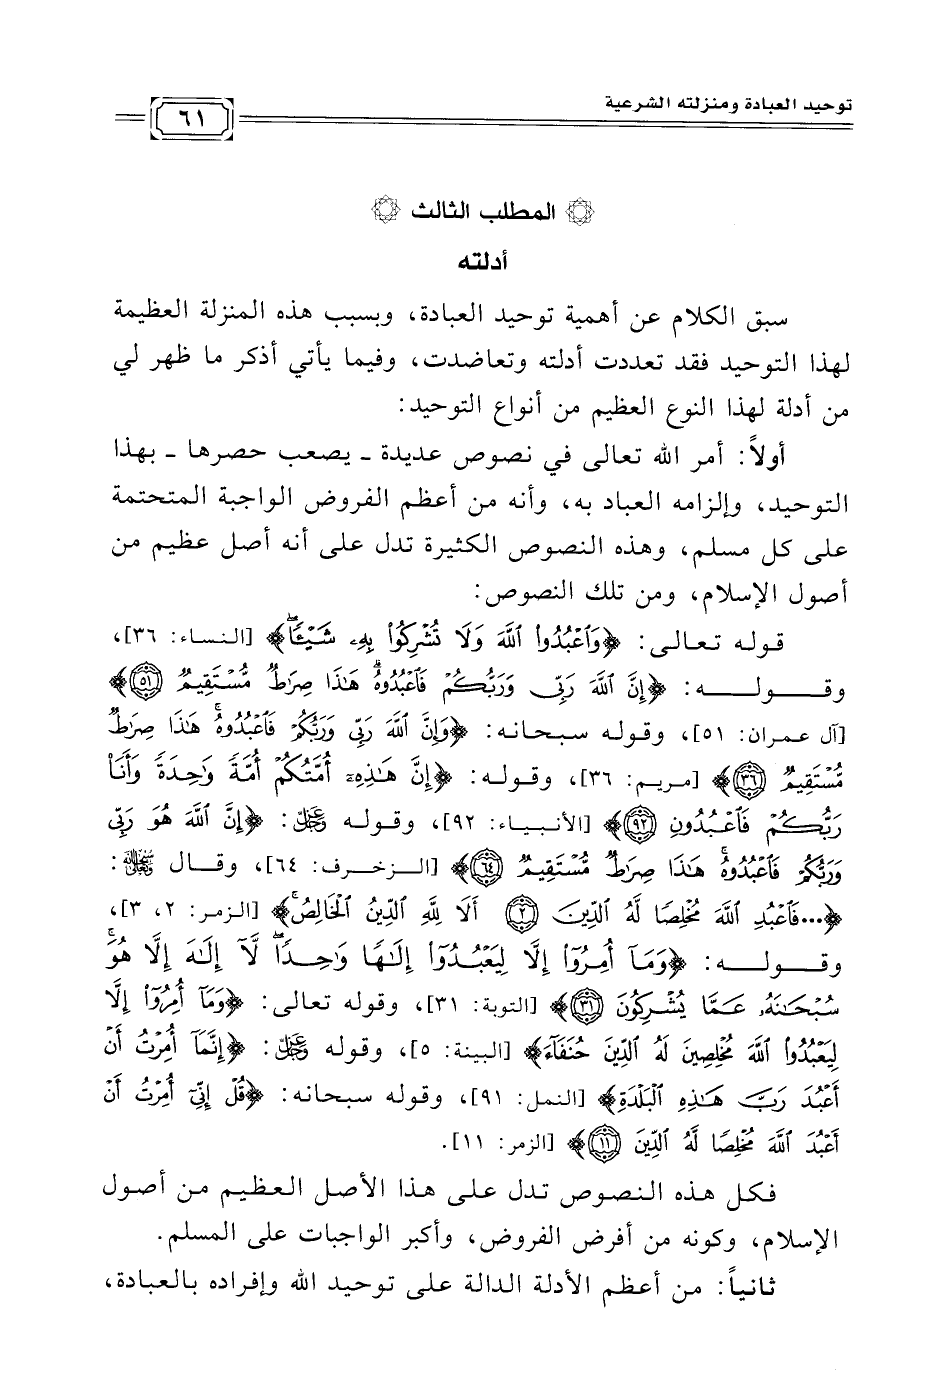 توحيد العبادة ومنزلته الشرعية
٦١
المطلب الثالث
أدلته
سبق الكلام عن أهمية توحيد العبادة، وبسبب هذه المنزلة العظيمة
لهذا التوحيد فقد تعددت أدلته وتعاضدت، وفيما يأتي أذكر ما ظهر لي
من أدلة لهذا النوع العظيم من أنواع التوحيد:
أولاً: أمر الله تعالى في نصوص عديدة ـ يصعب حصرها ـ بهذا
التوحيد، وإلزامه العباد به، وأنه من أعظم الفروض الواجبة المتحتمة
على كل مسلم، وهذه النصوص الكثيرة تدل على أنه أصل عظيم من
أصول الإسلام، ومن تلك النصوص:
قوله تعالى: ﴿وَٱعْبُدُوا۟ ٱللَّهَ وَلَا تُشْرِكُوا۟ بِهِۦ شَيْـًٔاۖ﴾ [النساء: ٣٦]،
وقـــولـــه: ﴿إِنَّ ٱللَّهَ رَبِّى وَرَبُّكُمْ فَٱعْبُدُوهُۗ هَـٰذَا صِرَٰطٌ مُّسْتَقِيمٌ ٥١﴾
[آل عمران: ٥١]، وقوله سبحانه: ﴿وَإِنَّ ٱللَّهَ رَبِّى وَرَبُّكُمْ فَٱعْبُدُوهُۚ هَـٰذَا صِرَٰطٌ
مُّسْتَقِيمٌ ٣٦﴾ [مريم: ٣٦]، وقوله: ﴿إِنَّ هَـٰذِهِۦٓ أُمَّتُكُمْ أُمَّةً وَٰحِدَةً وَأَنَا۠
رَبُّكُمْ فَٱعْبُدُونِ ٩٢﴾ [الأنبياء: ٩٢]، وقوله ﷿: ﴿إِنَّ ٱللَّهَ هُوَ رَبِّى
وَرَبُّكُمْ فَٱعْبُدُوهُۚ هَـٰذَا صِرَٰطٌ مُّسْتَقِيمٌ ٦٤﴾ [الـزخـرف: ٦٤]، وقـال ﷾:
﴿...فَٱعْبُدِ ٱللَّهَ مُخْلِصًا لَّهُ ٱلدِّينَ ٢ أَلَا لِلَّهِ ٱلدِّينُ ٱلْخَالِصُۚ﴾ [الزمر: ٢، ٣]،
وقـــولـــه: ﴿وَمَآ أُمِرُوٓا۟ إِلَّا لِيَعْبُدُوٓا۟ إِلَـٰهًا وَٰحِدًاۖ لَّآ إِلَـٰهَ إِلَّا هُوَۚ
سُبْحَـٰنَهُۥ عَمَّا يُشْرِكُونَ ٣١﴾ [التوبة: ٣١]، وقوله تعالى: ﴿وَمَآ أُمِرُوٓا۟ إِلَّا
لِيَعْبُدُوا۟ ٱللَّهَ مُخْلِصِينَ لَهُ ٱلدِّينَ حُنَفَآءَ﴾ [البينة: ٥]، وقوله ﷿: ﴿إِنَّمَآ أُمِرْتُ أَنْ
أَعْبُدَ رَبَّ هَـٰذِهِ ٱلْبَلْدَةِ﴾ [النمل: ٩١]، وقوله سبحانه: ﴿قُلْ إِنِّىٓ أُمِرْتُ أَنْ
أَعْبُدَ ٱللَّهَ مُخْلِصًا لَّهُ ٱلدِّينَ ١١﴾ [الزمر: ١١].
فكل هذه النصوص تدل على هذا الأصل العظيم من أصول
الإسلام، وكونه من أفرض الفروض، وأكبر الواجبات على المسلم.
ثانياً: من أعظم الأدلة الدالة على توحيد الله وإفراده بالعبادة،